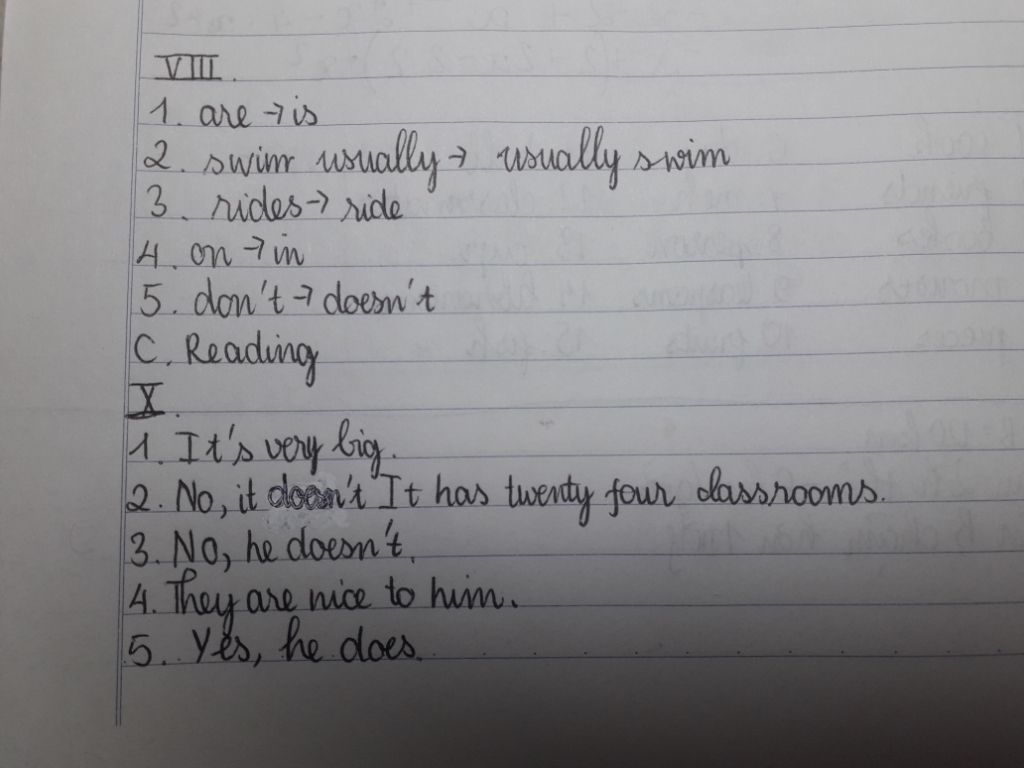 VIII.
1. are → is
2. swim usually → usually swim
3. rides → ride
4. on → in
5. don't → doesn't
C. Reading
X.
1. It's very big.
2. No, it doesn't It has twenty four classrooms.
3. No, he doesn't.
4. They are nice to him.
5. Yes, he does.